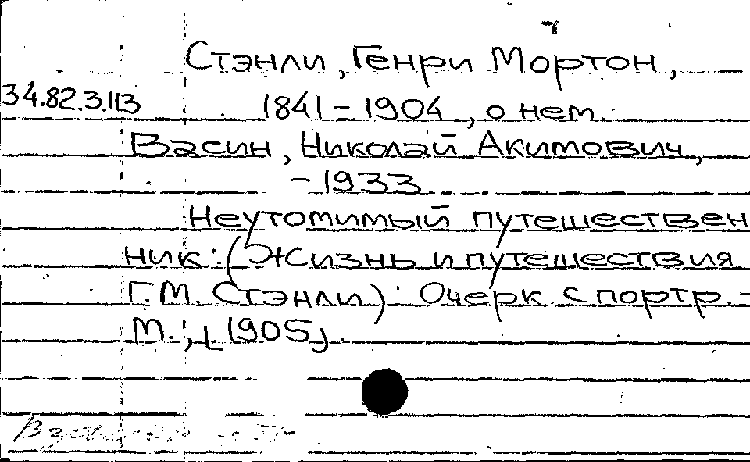 Стэнли, Генри Мортон,
34.82.3.113 1841-1904, о нем.
Васин, Николай Акимович,
-1933
Неутомимый путешествен
ник: (Жизнь и путешествия
Г.М. Стэнли): Очерк с портр.-
М., [1905].